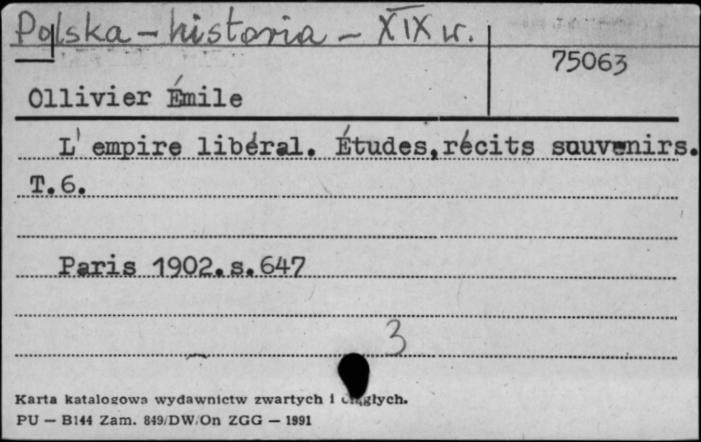 Polska – historia – XIX w.
75063
Ollivier Émile
L' empire libéral. Études,récits souvenirs.
T.6.
Paris 1902.s.647
3
Karta katalogowa wydawnictw zwartych i ciągłych.
PU — B144 Zam. 849/DW/On ZGG — 1991